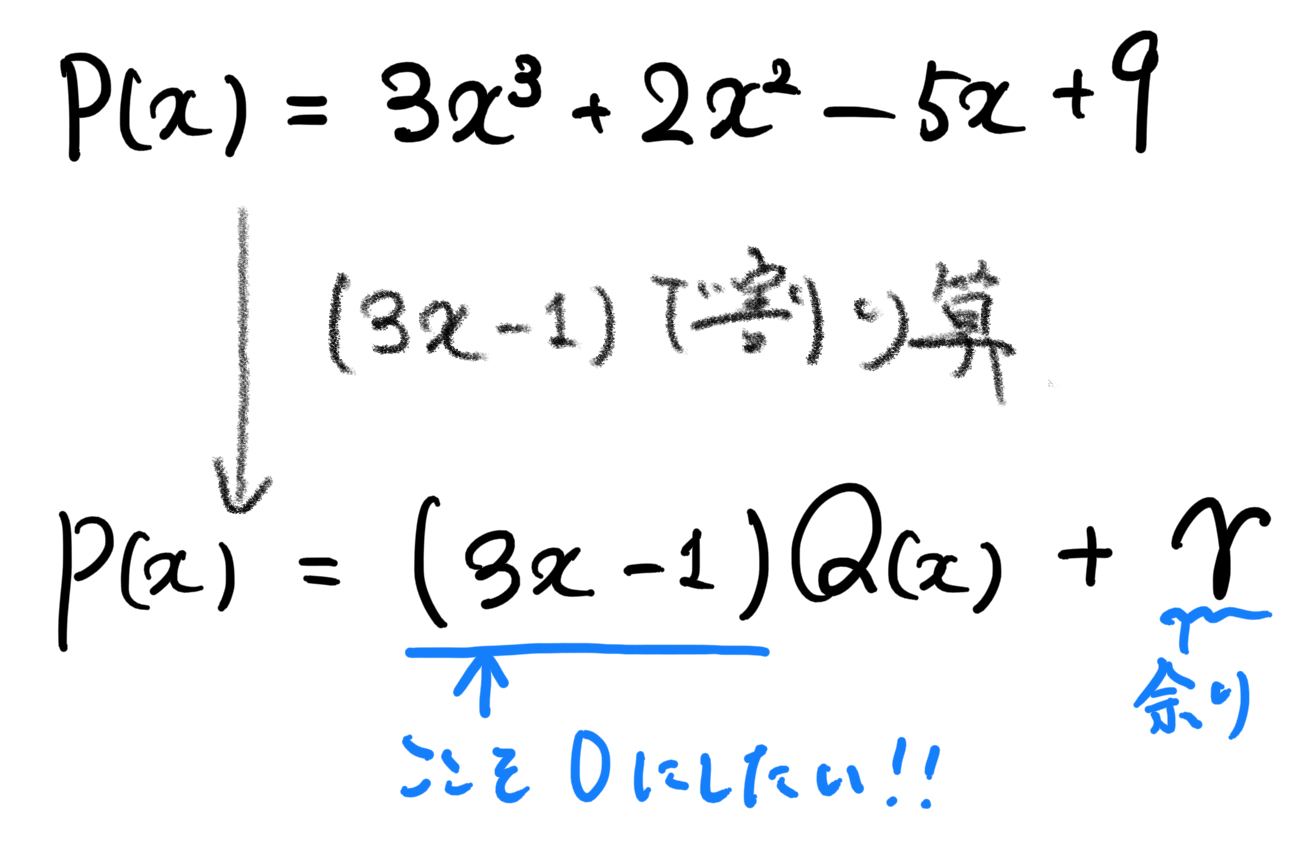 P(x) = 3x³ + 2x² - 5x + 9
(3x-1)で割り算
P(x) = (3x-1)Q(x) + r
余り
ここを0にしたい!!